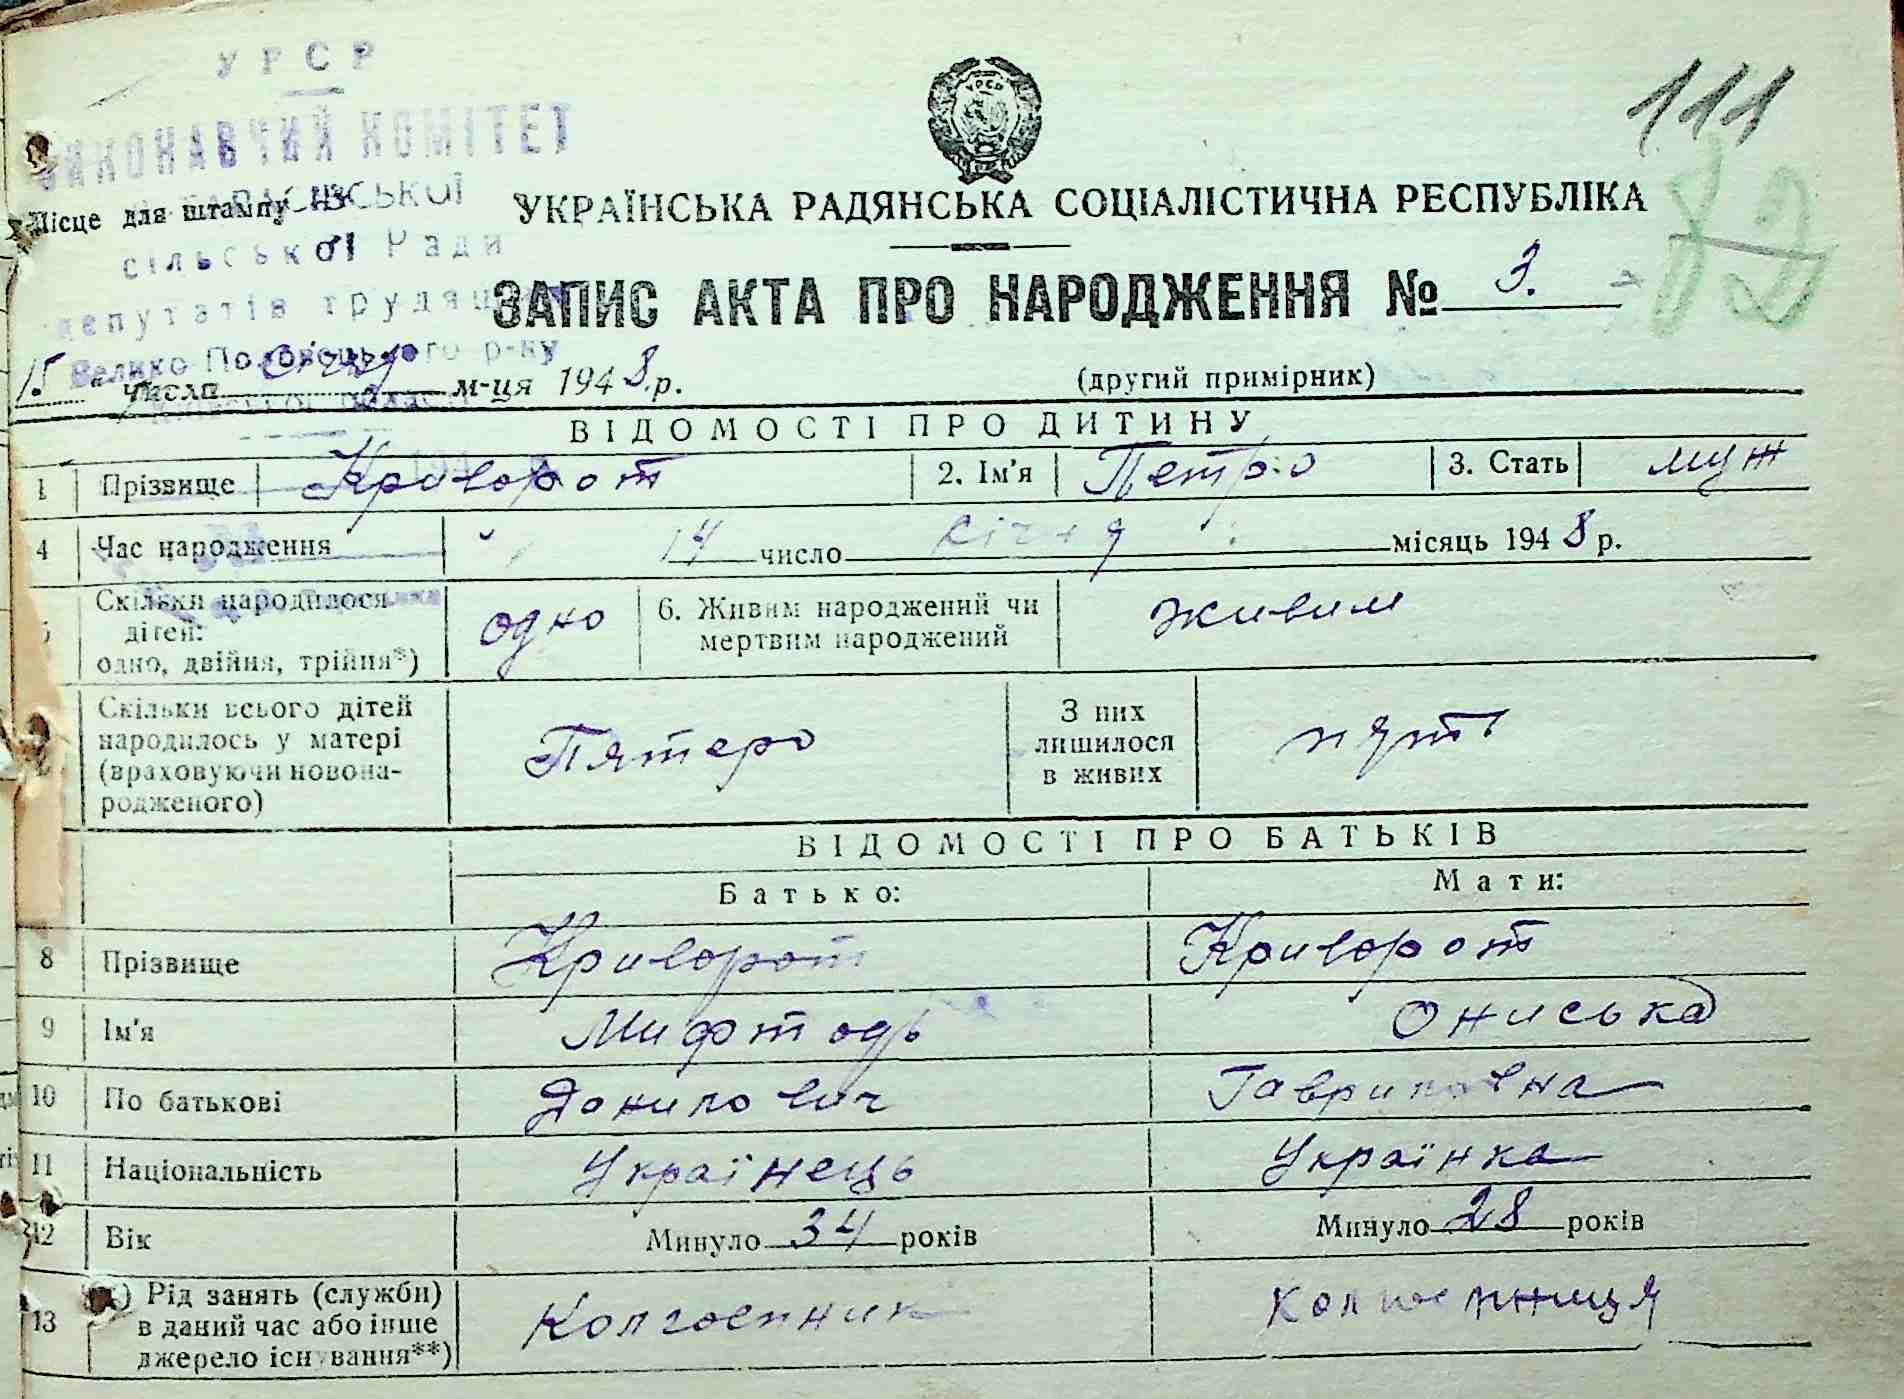 УРСР
ВИКОНАВЧИЙ КОМІТЕТ
111
Місце для штампу
УКРАЇНСЬКА РАДЯНСЬКА СОЦІАЛІСТИЧНА РЕСПУБЛІКА
82
сільської Ради
депутатів трудящих
ЗАПИС АКТА ПРО НАРОДЖЕННЯ № 3.
Велико Половецького р-ну
15 " числа січня м-ця 1948.р.
(другий примірник)
Київської області
ВІДОМОСТІ ПРО ДИТИНУ
1 Прізвище Криворот 2. Ім'я Петро 3. Стать муж
4 Час народження 14 число січня місяць 1948 р.
5 Скільки народилося дітей: одно, двійня, трійня*) одно 6. Живим народжений чи мертвим народжений живим
Скільки всього дітей народилось у матері (враховуючи новонародженого) Пятеро З них лишилося в живих пять
ВІДОМОСТІ ПРО БАТЬКІВ
Батько: Мати:
8 Прізвище Криворот Криворот
9 Ім'я Мифтодь Ониська
10 По батькові Данилович Гавриловна
11 Національність Українець Українка
12 Вік Минуло 34 років Минуло 28 років
13 Рід занять (служби) в даний час або інше джерело існування**) Колгоспник Колгоспниця